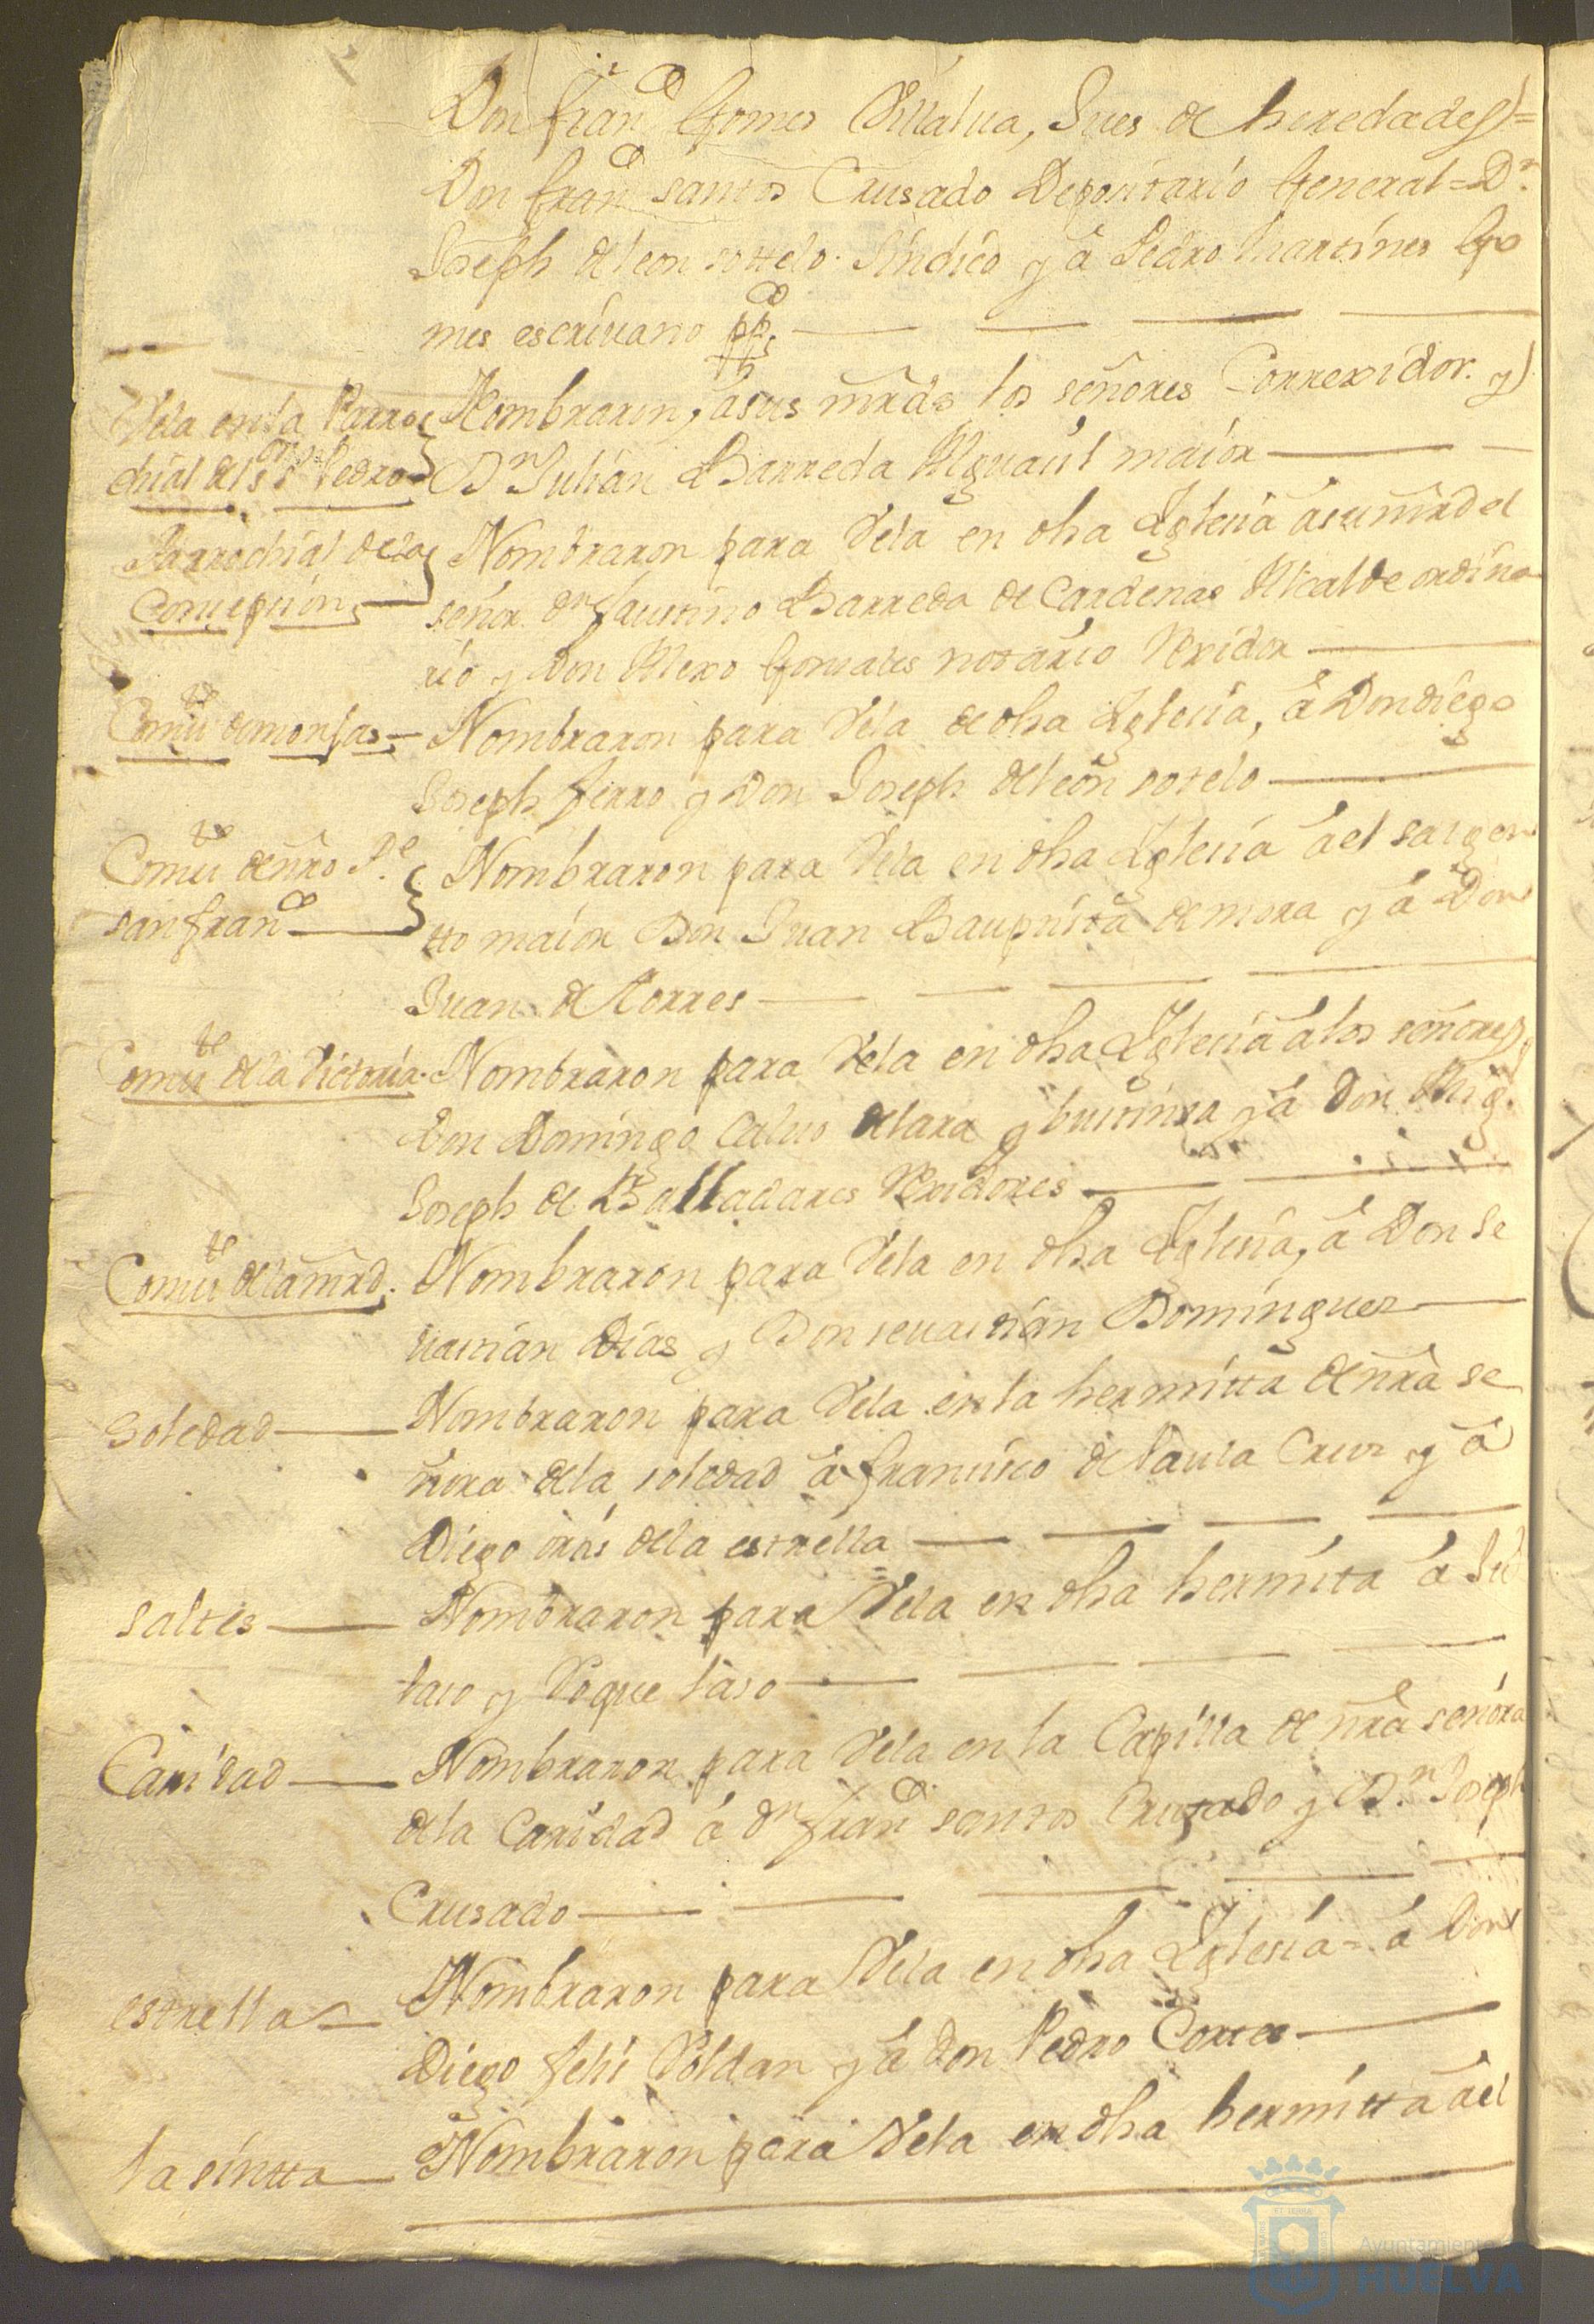 Don fran^co Gomes Villalua, Jues de heredades =
Don fran^co santos Crusado Depositario General = D^n
Joseph de leon sottelo Sindico y a Pedro Martines Go
mes escriuano pp^co
Vela en la Parro
chial del s^r s^n Pedro
Nombraron, a sus mrds los señores Correxidor y
D^n Julian Barreda Alguasil maior
Parrochial de la
Consepsion
Nombraron para Vela en dha Iglesia a su mrd el
señor d^n faustino Barreda de Cardenas Alcalde ordina
rio y Don Alexo Gonsales notario Rexidor
Comu^te de monjas
Nombraron para Vela de dha Iglesia, a Don diego
Joseph fierro y Don Joseph de leon sotelo
Comu^te de nro P^e
san fran^co
Nombraron para Vela en dha Iglesia a el sargen
tto maior Don Juan Bauptista de mora y a Don
Juan de Torres
Comu^te de la Victoria
Nombraron para Vela en dha Iglesia a los señores
Don Domingo Caluo de lara y a Don Mig^l
Joseph de Balladares Rexidores
Comu^te de la mrd.
Nombraron para Vela en dha Iglesia, a Don Se
uastian Dias y Don seuastian Dominguez
Soledad
Nombraron para Vela en la hermitta de nra se
ñora de la soledad a fransisco de Paula Crus y a
Diego de la estrella
Saltes
Nombraron para Vela en dha hermita a
laso y Roque laso
Caridad
Nombraron para Vela en la Capilla de nra señora
de la Caridad a d^n fran^co santos Crusado y D^n Joseph
Crusado
estrella
Nombraron para Vela en dha Iglesia = a Don
Diego felis Roldan y a don Pedro Cortes
la sintta
Nombraron para Vela en dha hermitta a el
Ayuntamiento
HUELVA